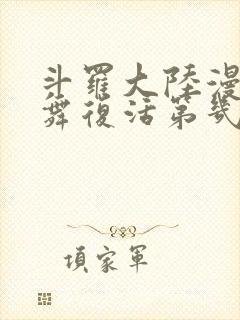 斗羅大陸漫
舞復活第幾
項家軍